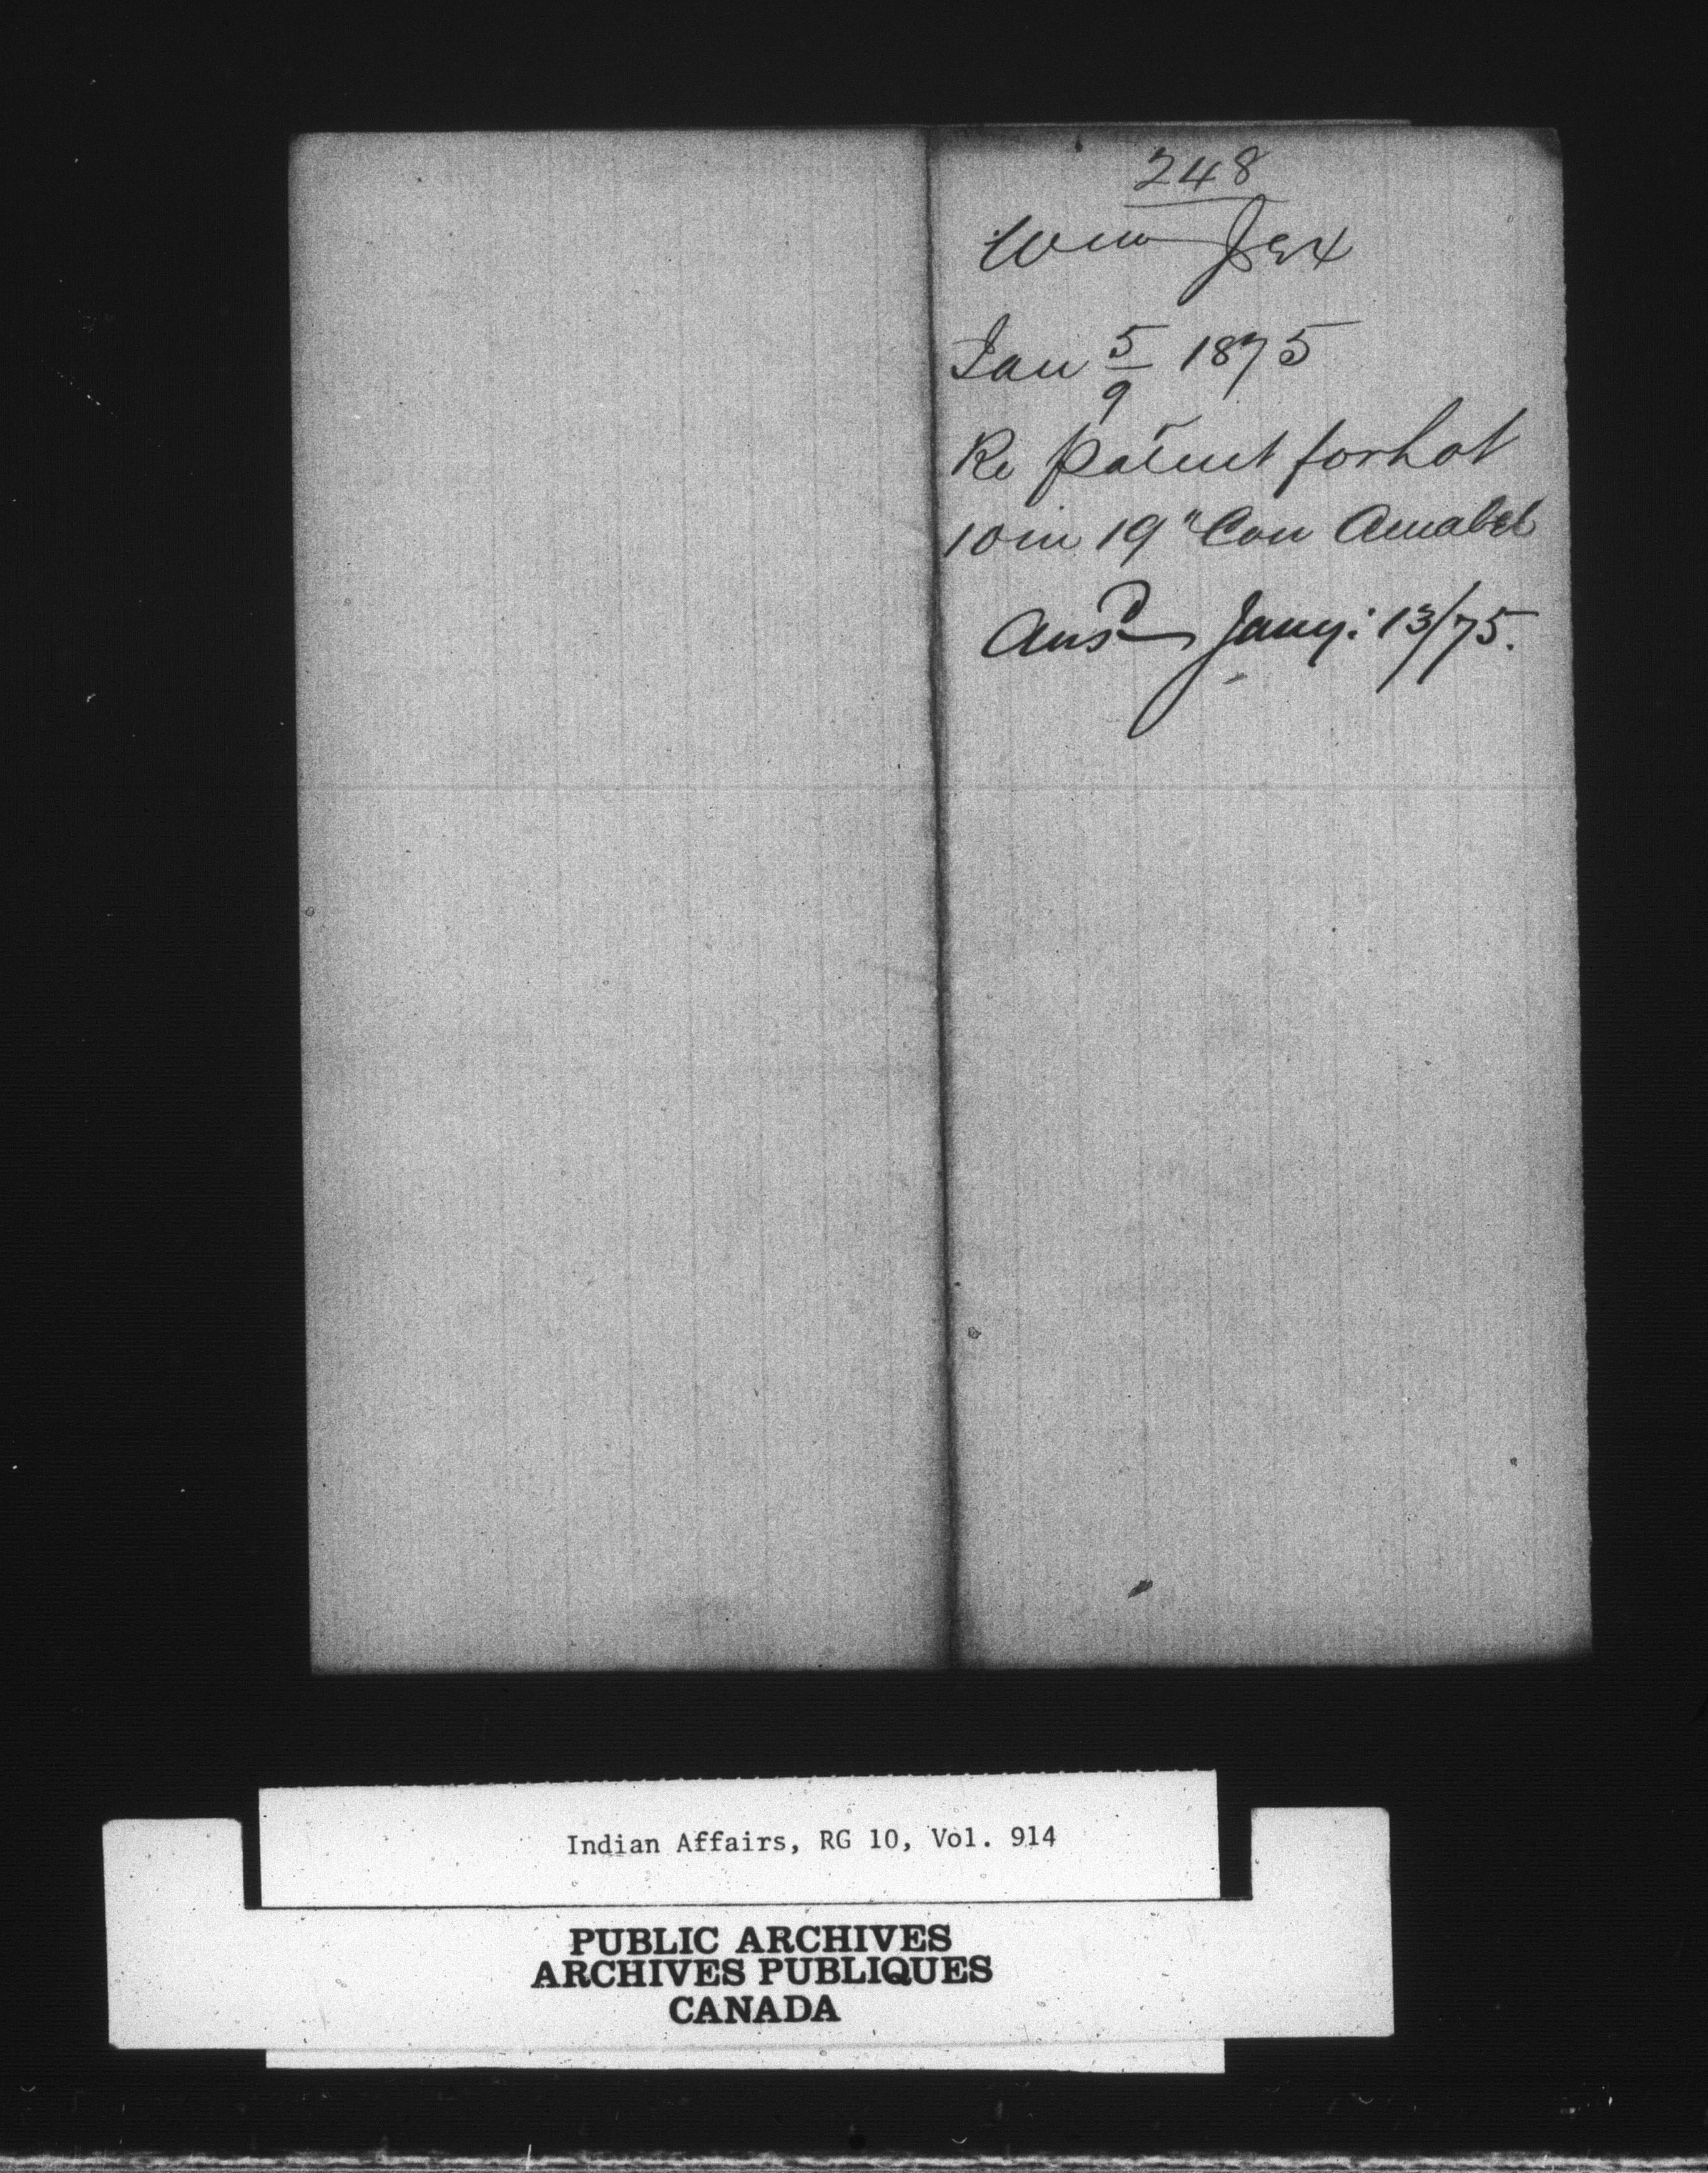 248
Wm Jex
Jan 5/9 1875
Re Patent for Lot
10 in 19" Con Amabel
Ansd Jany: 13/75.
Indian Affairs, RG 10, Vol. 914
PUBLIC ARCHIVES
ARCHIVES PUBLIQUES
CANADA